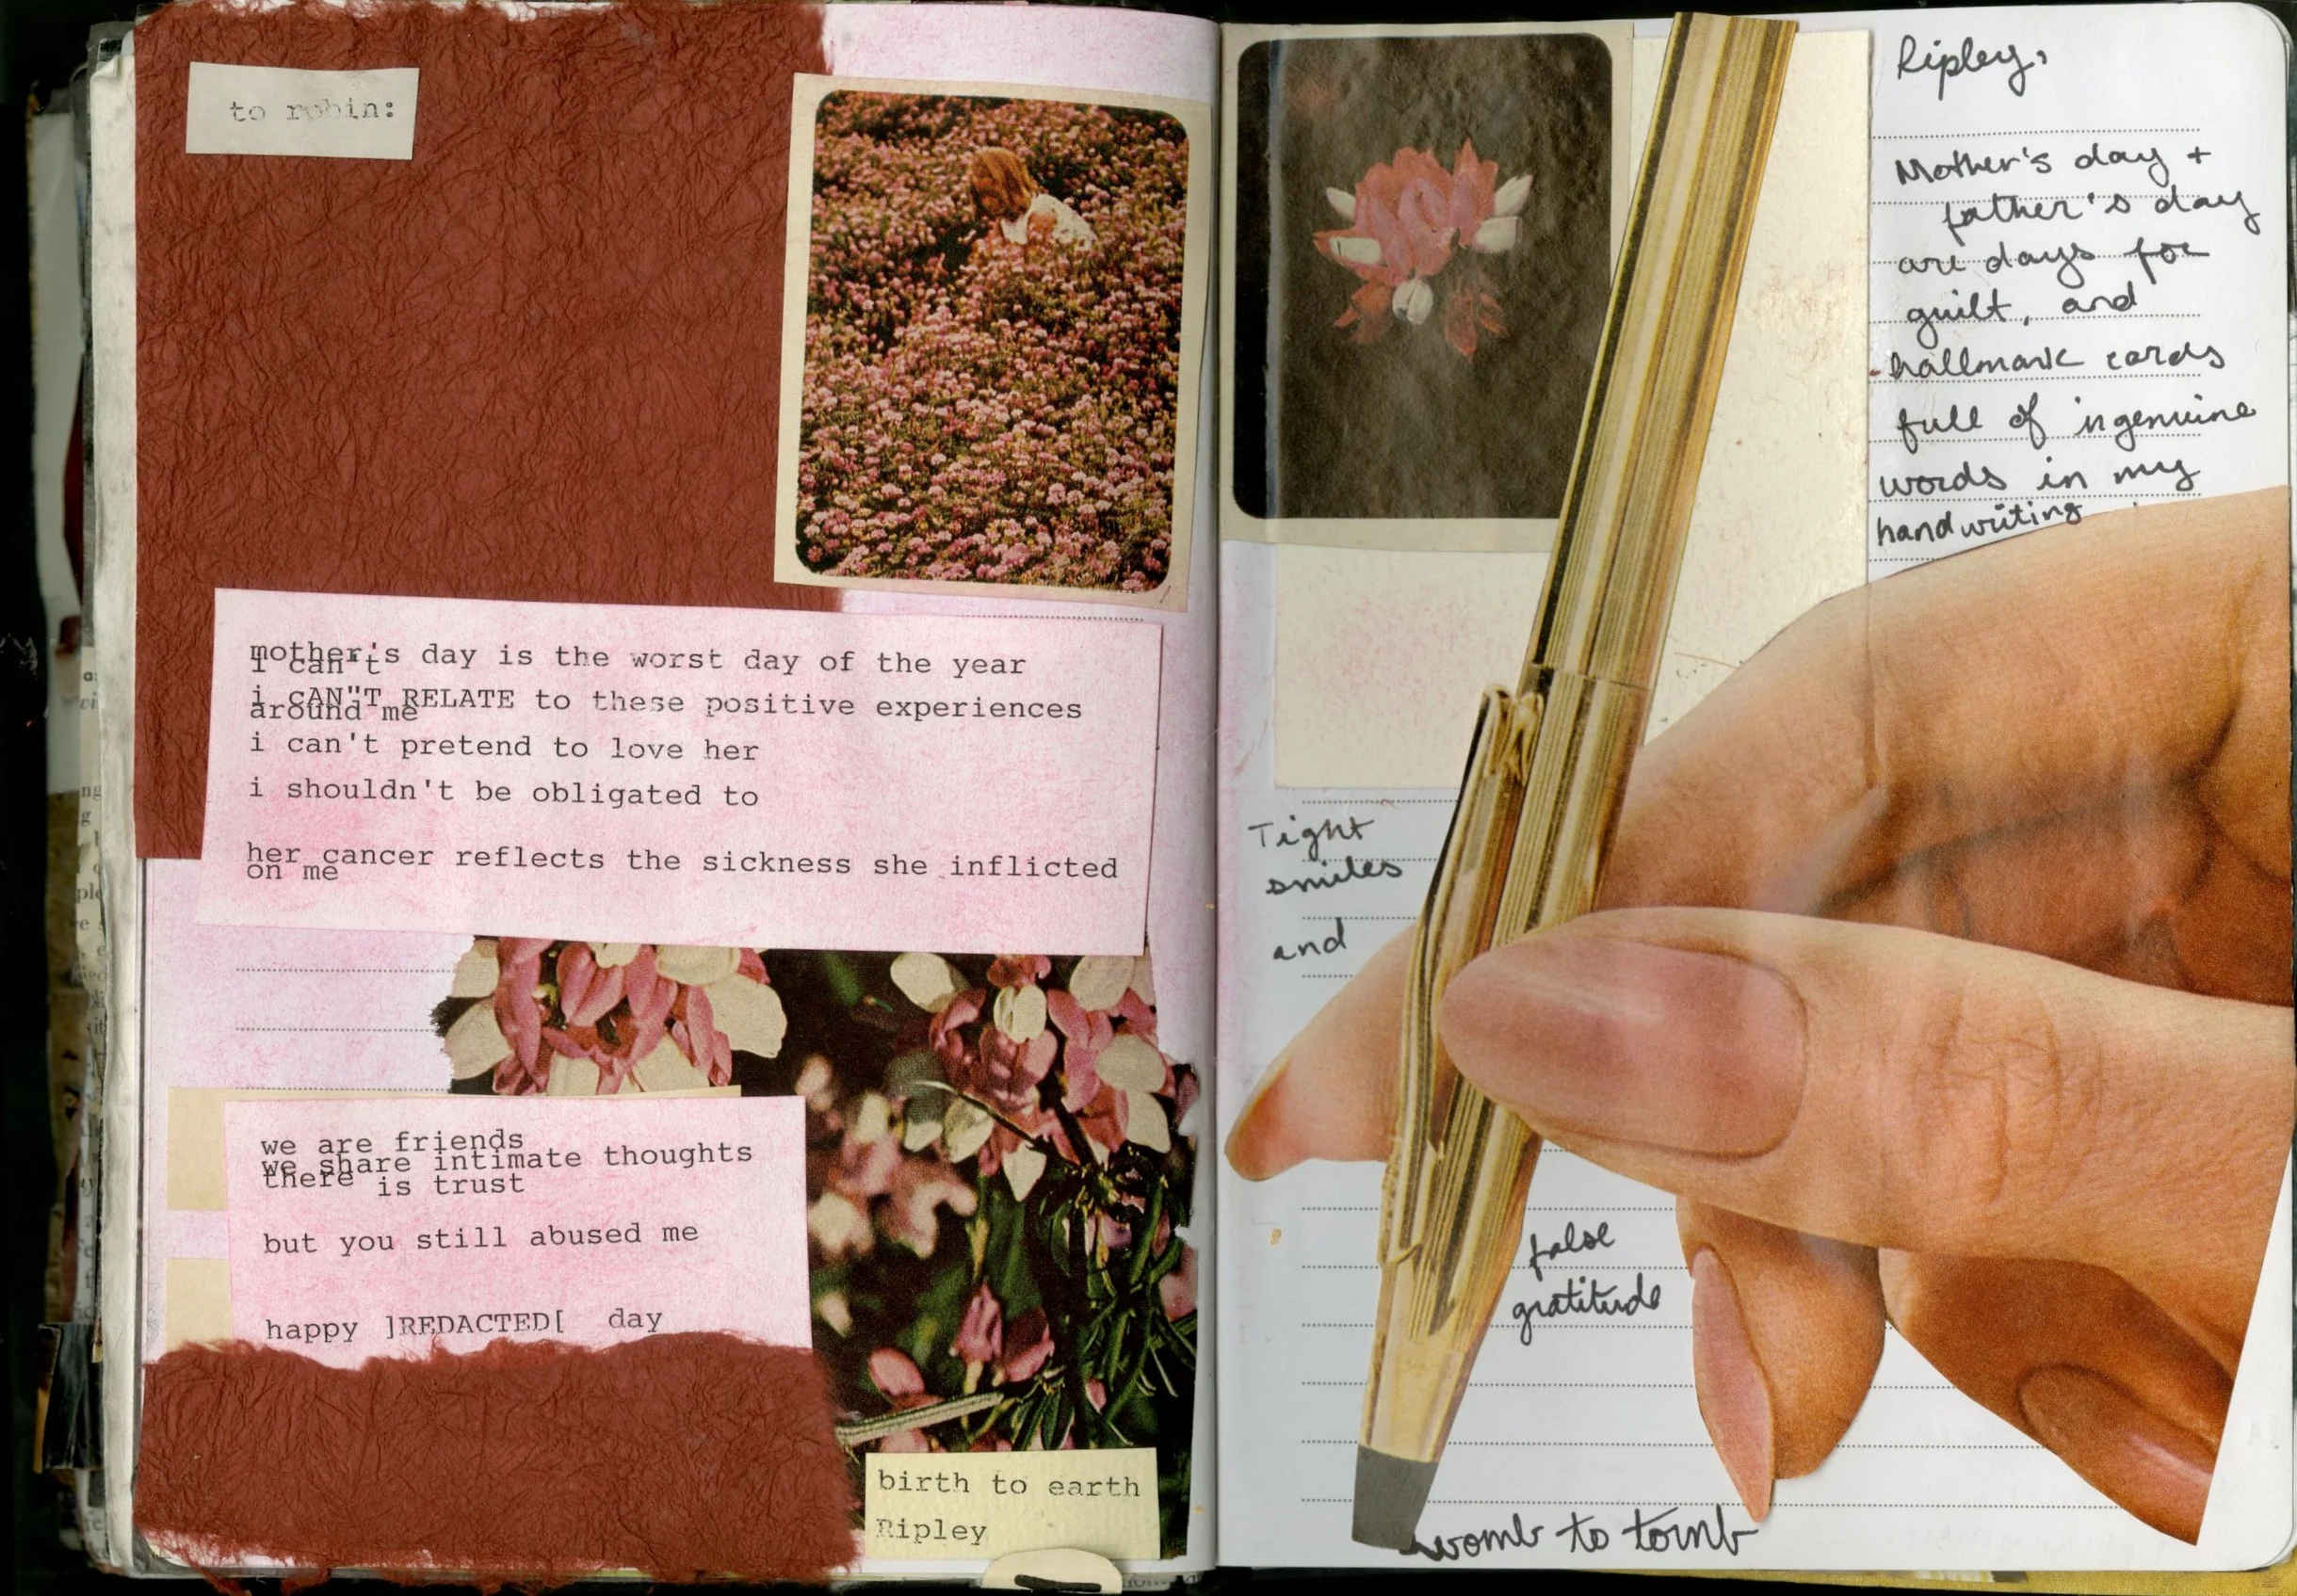 to robin:
mother's day is the worst day of the year
i can't
i cAN"T RELATE to these positive experiences
around me
i can't pretend to love her
i shouldn't be obligated to
her cancer reflects the sickness she inflicted
on me
we are friends
we share intimate thoughts
there is trust
but you still abused me
happy ]REDACTED[ day
birth to earth
Ripley
Ripley,
Mother's day +
father's day
are days for
guilt, and
hallmark cards
full of ingenuine
words in my
handwriting
Tight
smiles
and
false
gratitude
womb to tomb